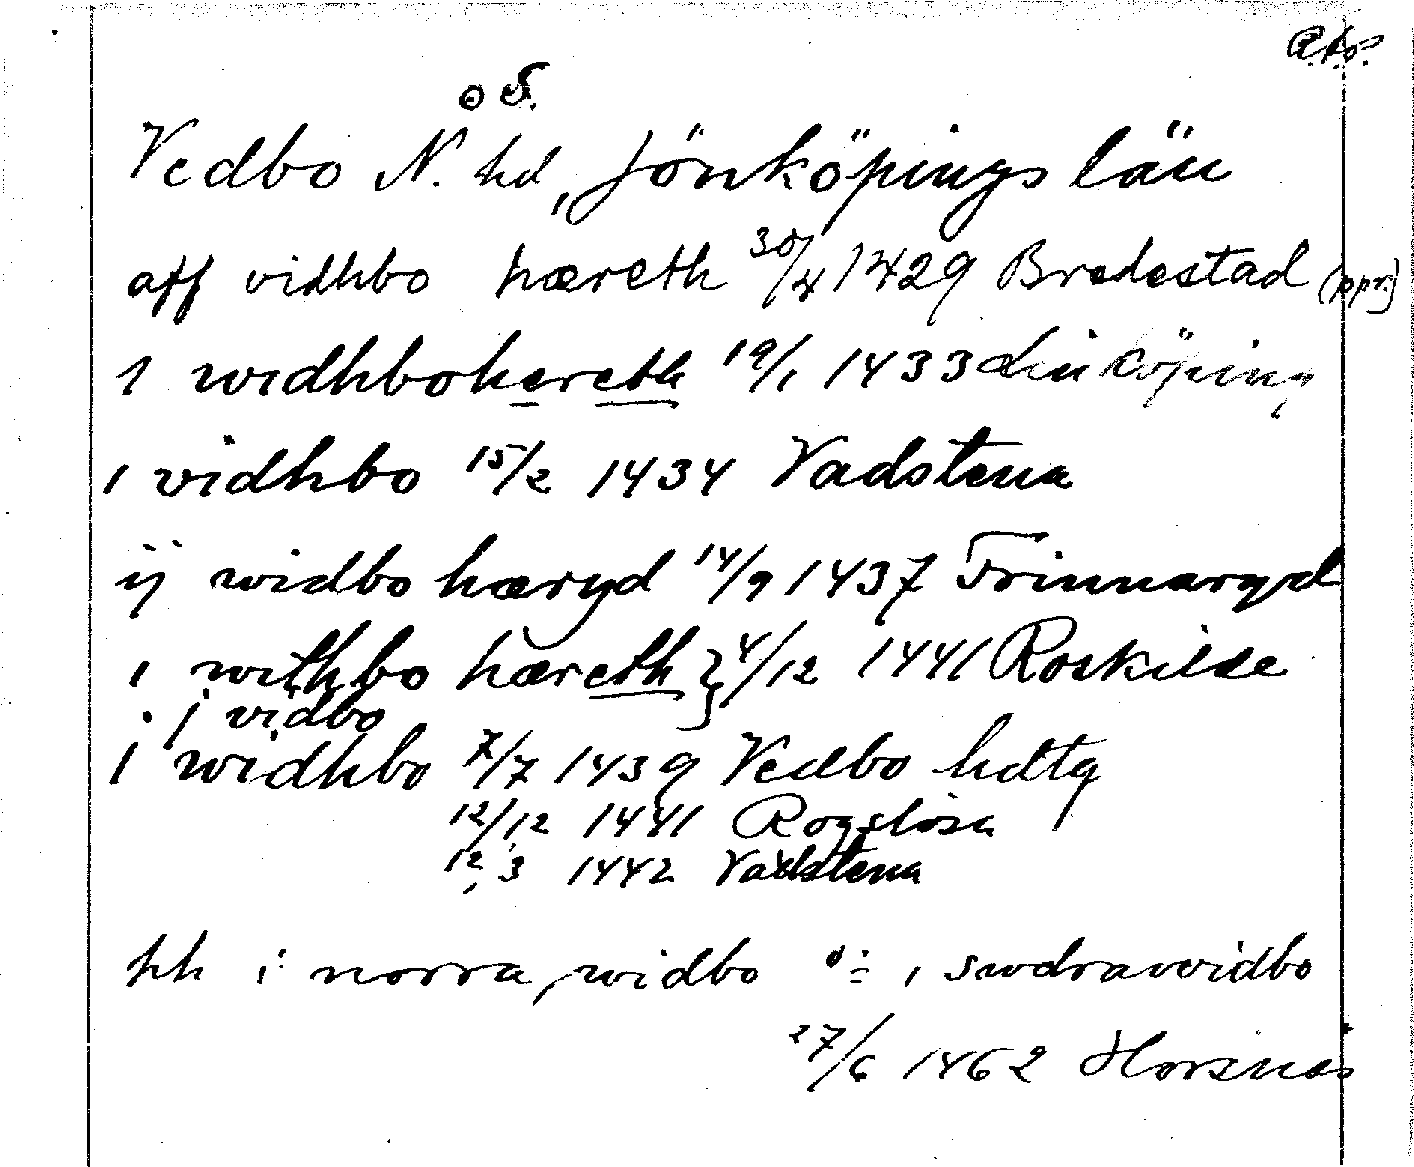 o S.
Vedbo N. hd, Jönköpings län
aff vidhbo hæreth 30/4 1429 Bredestad (ppr.)
i widhbohereth 19/1 1433 Linköping
i vidhbo 15/2 1434 Vadstena
ij widbo hæryd 14/9 1437 Frinnaryd
i withbo hæreth } 4/12 1441 Roskilde
i vidbo
i widhbo 7/7 1439 Vedbo hdtg
12/12 1441 Rogslösa
12/3 1442 Vadstena
hh i norra widbo i swdrawidbo
27/6 1462 Horsnäs